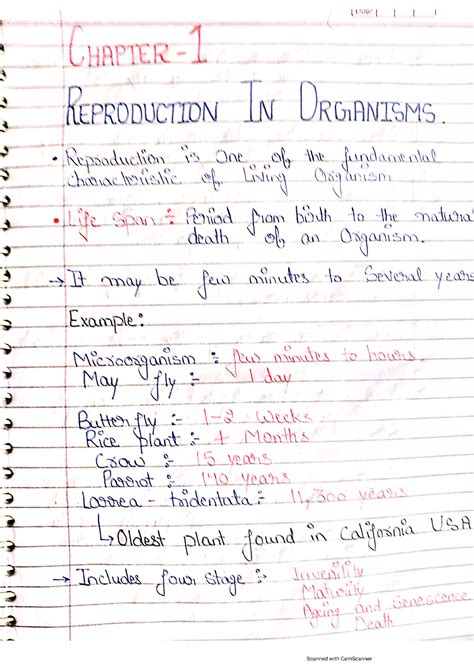 CHAPTER-1
REPRODUCTION IN ORGANISMS.
• Reproduction is One of the fundamental
characteristic of Living Organism
• Life Span ÷ Period from birth to the natural
death of an Organism.
→ It may be few minutes to Several years
Example:
Microorganism ÷ few minutes to hours.
May fly ÷ 1 day
Butterfly :- 1-2 Weeks
Rice plant :- 4 Months
Crow ÷ 15 years
Parrot :- 140 years
Larrea - tridentata:- 11,300 years
↳ Oldest plant found in California USA
→ Includes four stage :- Juvenility
Maturity
Ageing and Senescence
Death
Scanned with CamScanner